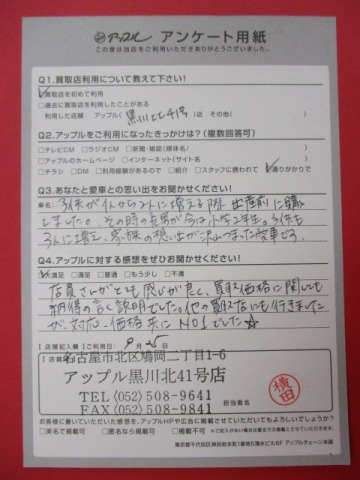 アップル アンケート用紙
この度は当店をご利用いただきありがとうございました。
Q1.買取店利用について教えて下さい!
買取店を初めて利用
□過去に買取店を利用したことがある
利用した店舗: アップル( 黒川41号 )店 その他( )
Q2.アップルをご利用になったきっかけは?(複数回答可)
□テレビCM □ラジオCM □新聞・雑誌(媒体名: )
□アップルのホームページ □インターネット(サイト名 )
□チラシ □DM □利用経験があるので □紹介 □スタッフに誘われて 通りがかりで
Q3.あなたと愛車との思い出をお聞かせください!
車名: 子供が1人から2人に増える際 出産前に購
しました。その時の長男が今は小学2年生。子供も
3人に増え、家族の想い出が沢山つまった愛車です。
Q4.アップルに対する感想をぜひお聞かせください!
大満足 □満足 □普通 □もう少し □不満
店員さんがとても感じが良く、買取価格に関しても
納得の行く説明でした。他の買取店にも行きました
が、対応・価格共にNO1でした☆
【店舗記入欄】【ご利用日: 9月25日
【店舗
名古屋市北区鳩岡二丁目1-6
アップル黒川北41号店
TEL(052)508-9641
FAX(052)508-9841
担当者名
横田
お客様に書いていただいた感想を、アップルHPや広告に掲載させていただいてもよろしいでしょうか?
□実名で掲載可 □匿名なら掲載可 □掲載不可
東京都千代田区神田佐久町1番地5清水ビル6F アップルチェーン本部